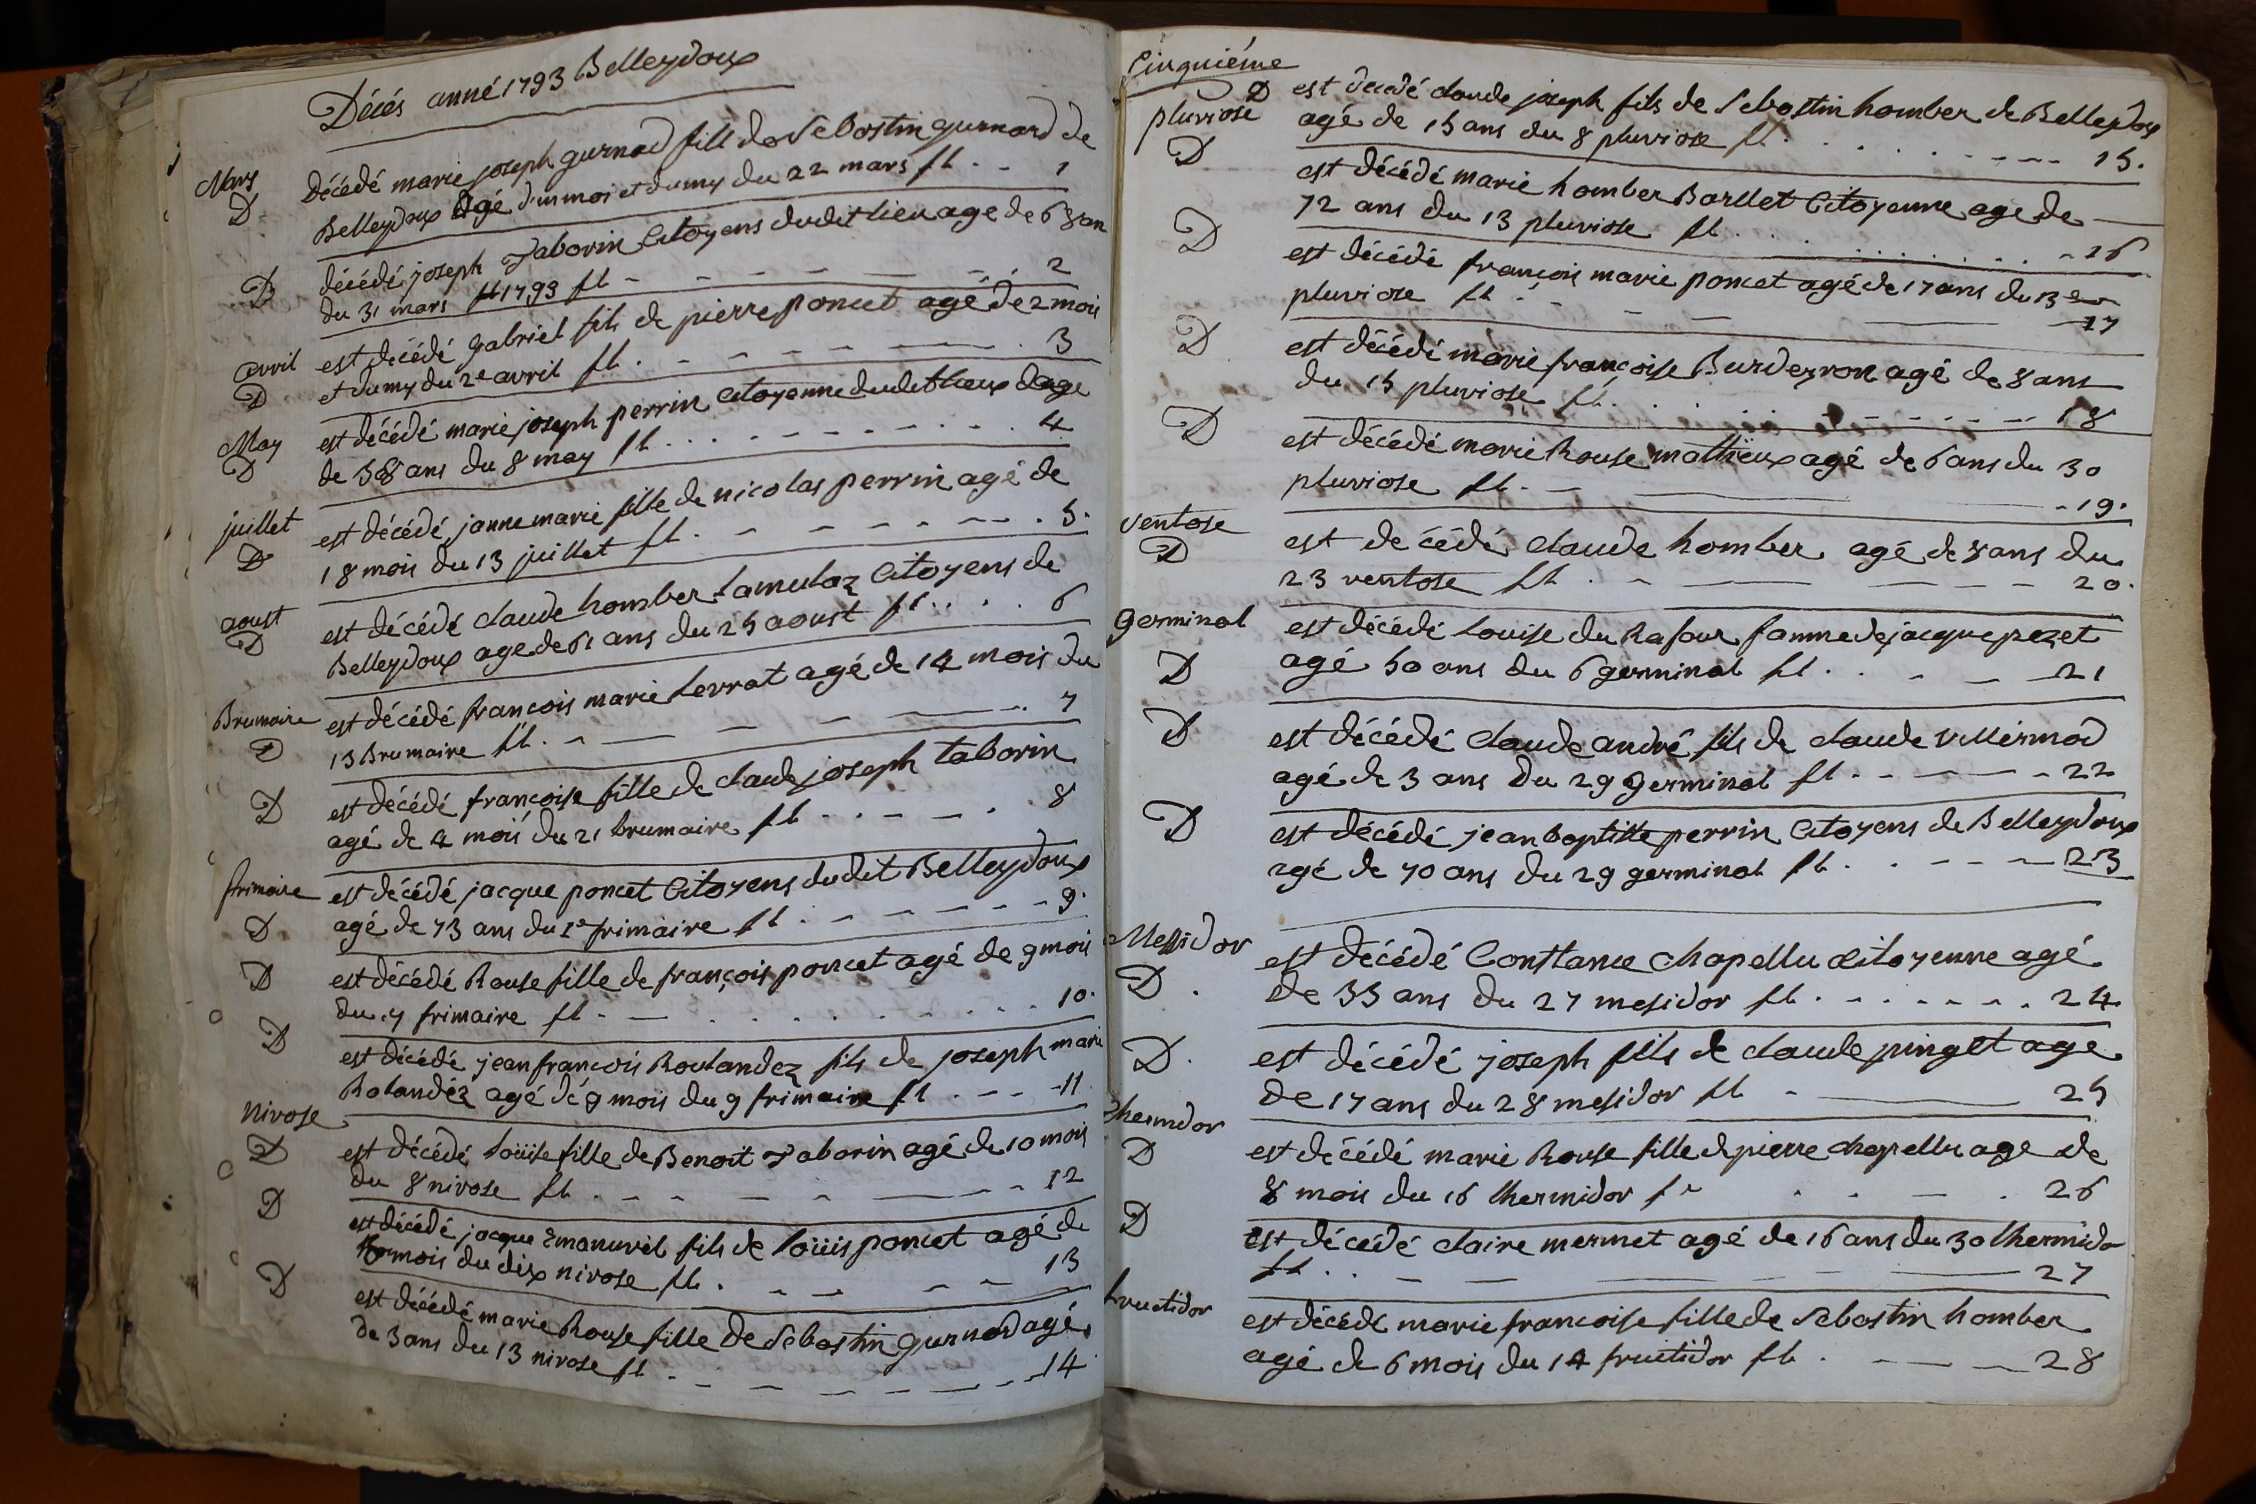 Décés anné 1793 Belleydoux
Mars
D
Décédé marie joseph gurnad fill de Sebostin gurnard de
Belleydoux Agé d'un moi et dumy du 22 mars fl - - 1
D
décédé joseph Taborin Citoyens dudit lieu age de 68 an
du 31 mars 1793 fl - - - - - 2
avril
D
est décédé gabriel fils de pierre poncet agé de 2 mois
et dumy du 2e avril fl . - - - - . 3
May
D
est décédé marie joseph perrin Citoyenne dudit lieux age
de 58 ans du 8 may fl . . . - - - . . 4
juillet
D
est décédé janne marie fille de nicolas perrin agé de
18 mois du 13 juillet fl . - - - - . 5.
aoust
D
est décédé claude homber lamulaz Citoyens de
Belleydoux age de 61 ans du 25 aoust fl . . . . 6
Brumaire
D
est décédé françois marie Levrat agé de 14 mois du
13 Brumaire fl . - - - - . 7
D
est décédé françoise fille de claude joseph taborin
agé de 4 mois du 21 brumaire fl . . - - . 8
frimaire
D
est décédé jacque poncet Citoyens dudit Belleydoux
agé de 73 ans du 1e frimaire fl . - - - - 9.
D
est décédé Rouse fille de françois poncet agé de 9 mois
du 7 frimaire fl - - . . . . . 10.
D
est décédé jean françois Roulandez fils de joseph mari
Rolandéz agé dé 9 mois du 9 frimaire fl . - - -11
Nivose
D
est décédé Loüise fille de Benoït Taborin agé de 10 mois
du 8 nivose fl . - - - - 12
D
est décédé jacque Emanuvel fils de Loüis poncet agé de
mois du dix nivose fl . - - - - 13
D
est décédé marie Rouse fille de Sebostin gurnod agé
de 3 ans du 13 nivose fl . - - - - - 14
Cinquiéme
pluviose
D
est décédé claude joseph fils de Sebostin homber de Belleydoux
agé de 15 ans du 8 pluviose fl . . . . - - - 15.
D
est décédé marie homber Barllet Citoyenne age de
72 ans du 13 pluviose fl . . . . . . - 16
D
est décédé françois marie poncet agé de 17 ans du 13e
pluviose fl . - - - - 17
D
est décédé marie françoise Burdeyron agé de 8 ans
du 15 pluviose fl . . . . - - - - 18
D
est décédé marie Rouse mathieux agé de 6 ans du 30
pluviose fl . - - - 19.
Ventose
D
est décédé claude homber agé de 8 ans du
23 ventose fl . - - - - 20.
Germinal
D
est décédé Louise du Rafour famme de jacque pezet
agé 50 ans du 6 germinal fl . . - - 21
D
est décédé claude andré fils de claude Villermod
agé de 3 ans du 29 Germinal fl . - - - - 22
D
est décédé jean baptiste perrin Citoyens de Belleydoux
agé de 70 ans du 29 germinal fl . . - - - 23
Messidor
D
est décédé Consttance chapellu Citoyenne agé
de 33 ans du 27 mesidor fl . - . - - . 24
D.
est décédé joseph fils de claude pinget age
de 17 ans du 28 mesidor fl - - 25
thermidor
D
est décédé marie Rouse fille de pierre chapellu age de
8 mois du 16 thermidor fl . . - . 26
D
est décédé claire mermet agé de 16 ans du 30 thermido
fl . . - - - - 27
fructidor
est décédé marie françoise fille de Sebostin homber
agé de 6 mois du 14 fructidor fl . - - 28